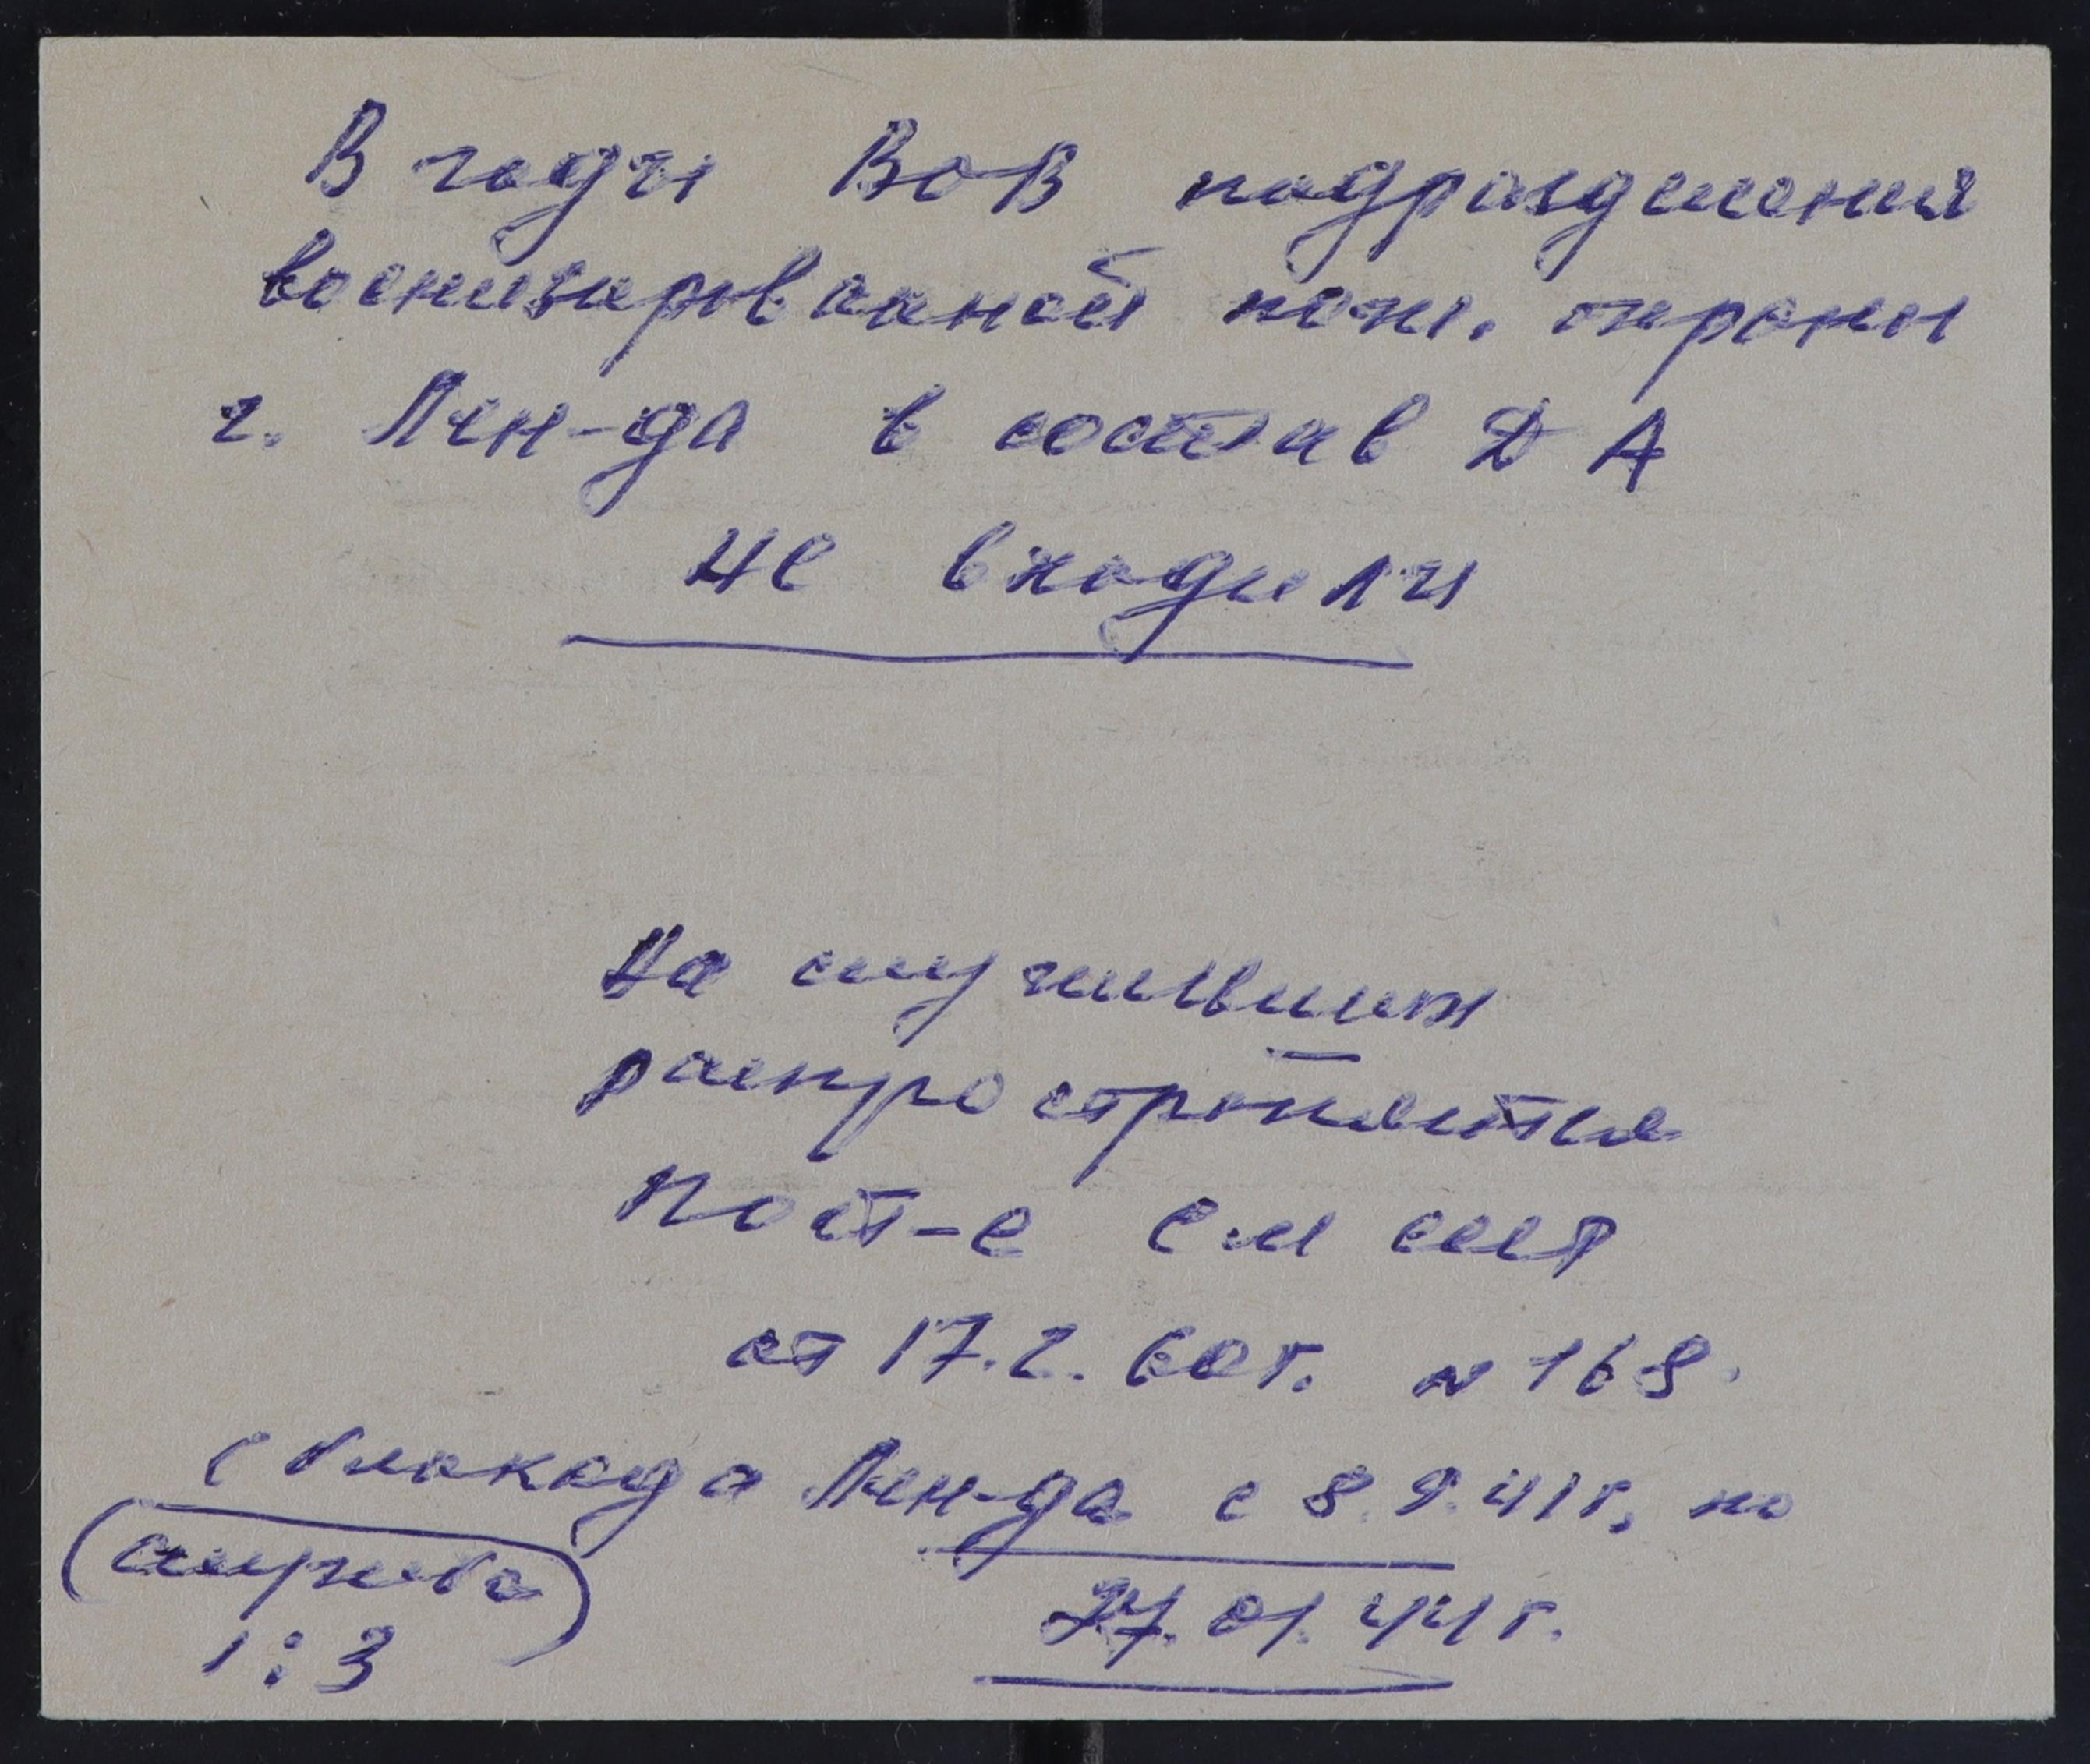 В годы ВоВ подразделения
военизированной пож. охраны
г. Лен-да в состав ДА
не входили
На служивших
распространяется
Пост-е СМ СССР
от 17.2.60г. № 168.
с блокада Лен-да с 8.9.41г. по
служба
27.01.44г.
1:3